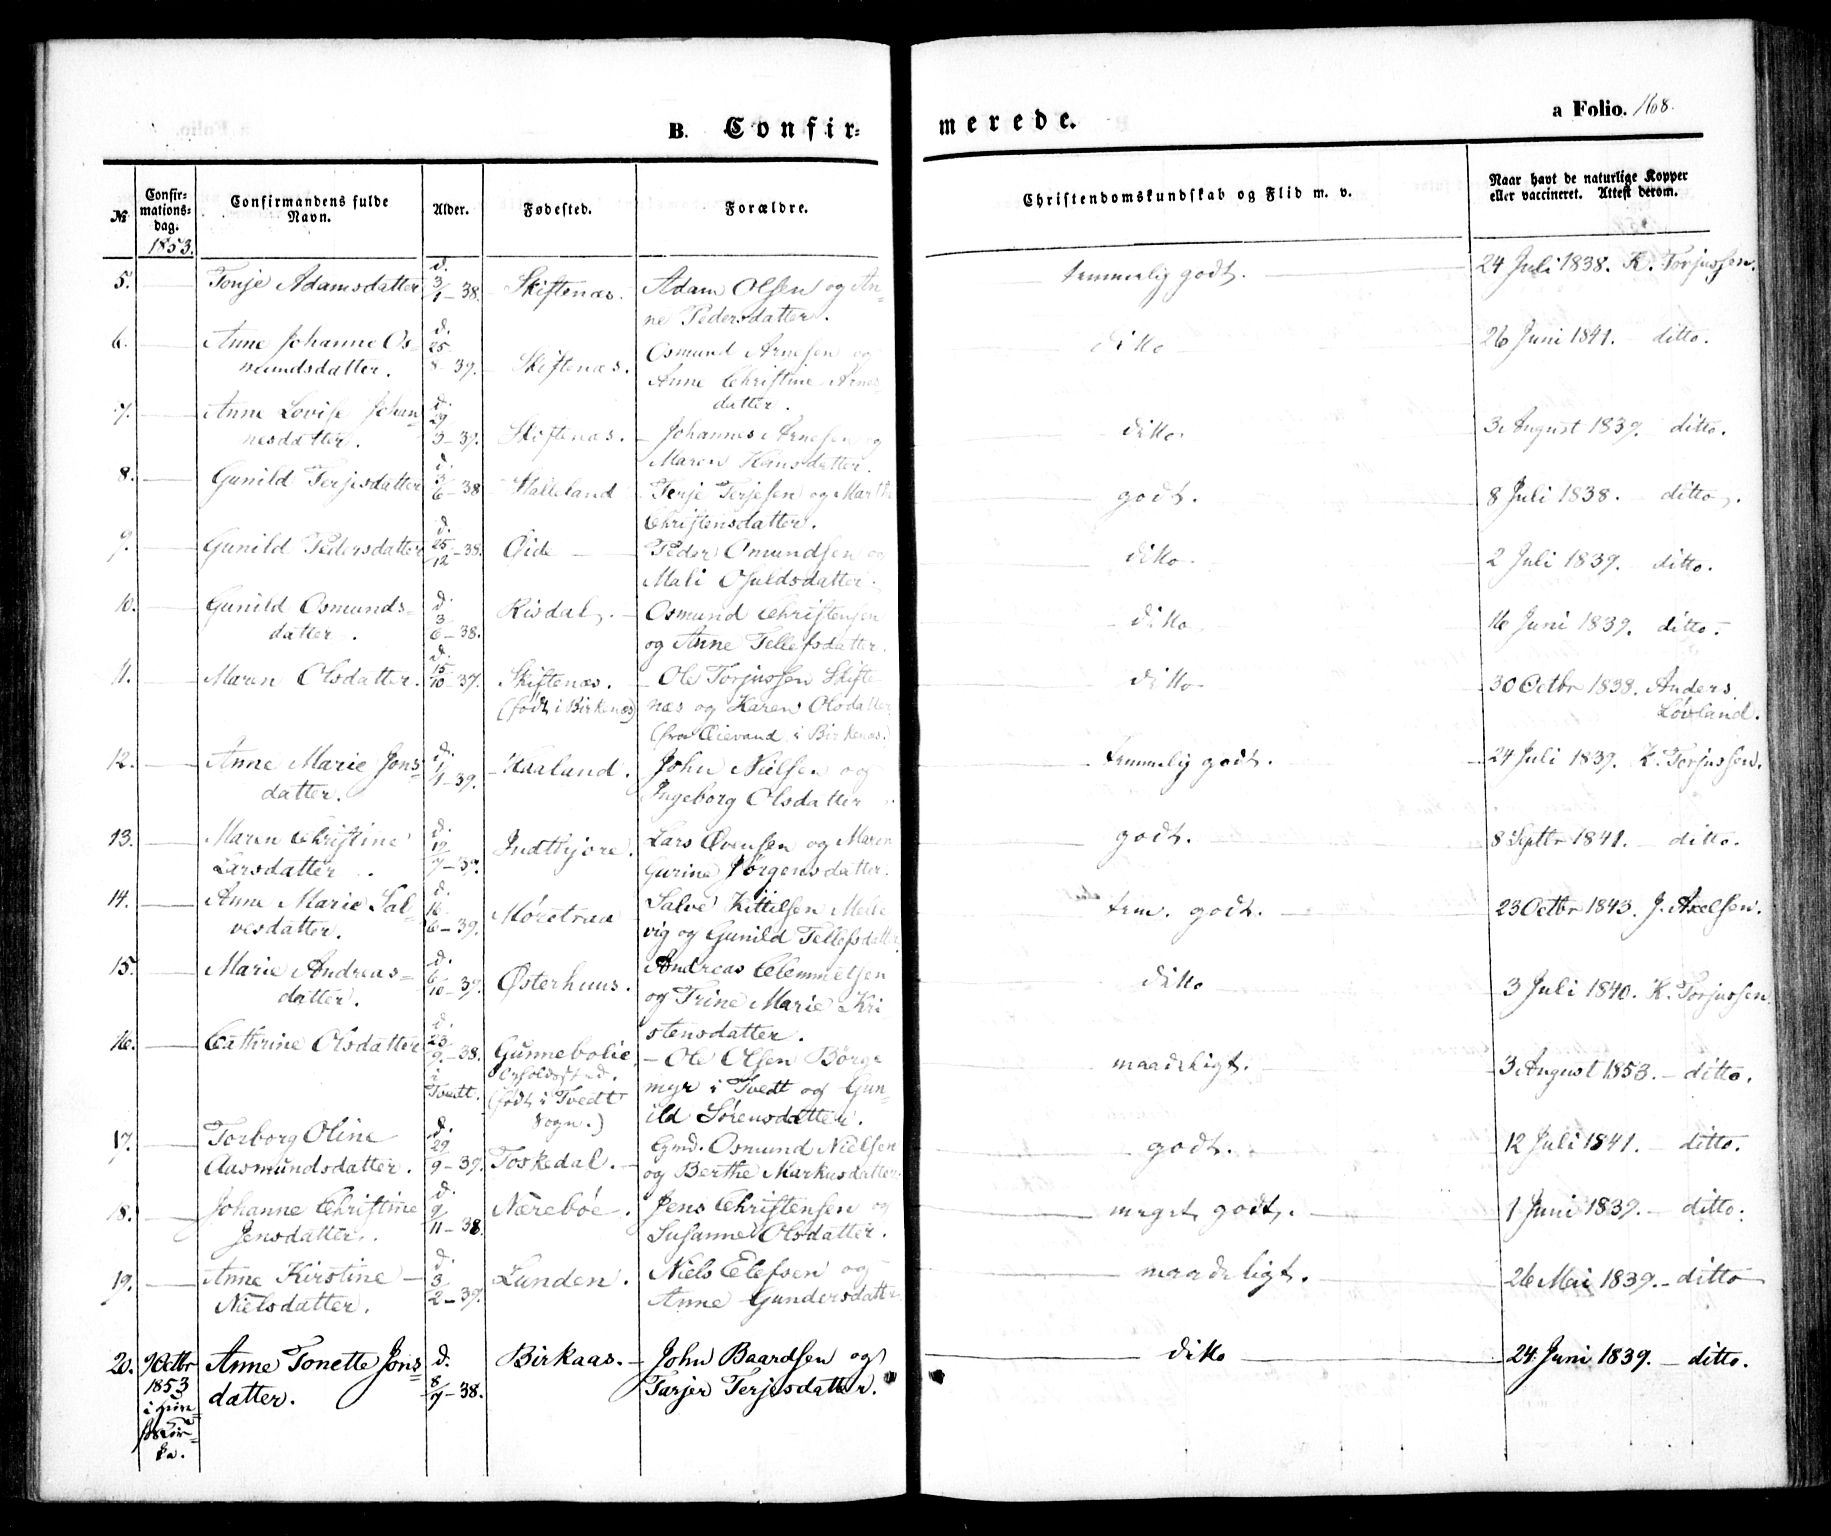 B. Confir-
merede.
a Folio. 168.
№
Confir-
mations-
dag.
1853.
Confirmandens fulde
Navn.
Alder.
Fødested.
Forældre.
Christendomskundskab og Flid m. v.
Naar havt de naturlige Kopper
eller vaccineret. Attest derom.
5. Tonje Adamsdatter d. 3/1-38. Skiftenæs. Adam Olsen og An- temmelig godt. 24 Juli 1838. K. Torjussen.
ne Pedersdatter.
6. Anne Johanne Os- d. 25/8-39. Skiftenæs. Osmund Arnesen og ditto 26 Juni 1841. ditto.
mundsdatter. Anne Christine Arnes
datter.
7. Anne Lovise Johan- d. 29/3-39. Skiftenæs. Johannes Arnesen og ditto. 3 August 1839. ditto.
nesdatter. Maren Hansdatter.
8. Gunild Terjesdatter d. 3/6-38 Halleland Terje Terjesen og Marthe godt. 8 Juli 1838. ditto.
Christensdatter.
9. Gunild Pedersdatter d. 25/12-38. Eide Peder Omundsen og ditto. 2 Juli 1839. ditto.
Mali Osuldsdatter.
10. Gunild Osmunds- d. 3/6-38. Risdal. Osmund Christensen ditto 16 Juni 1839. ditto.
datter. og Anne Tellefsdatter.
11. Maren Olsdatter. d. 15/10-37. Skiftenæs. Ole Torjussen Skifte ditto 30 Octbr 1838. Anders
(født i Birkenæs) næs og Karen Olsdatter Løvland.
(fra Øievand i Birkenæs.)
12. Anne Marie Jons- d. 1/1-39. Kaalund. John Nielsen og temmelig godt. 24 Juli 1839. K. Torjussen.
datter. Ingeborg Olsdatter
13. Maren Christine d. 12/7-39. Indtkjøre. Lars Evensen og Maren godt. 8 Septbr 1841. ditto.
Larsdatter. Gurine Jørgensdatter.
14. Anne Marie Sal- d. 16/6-39. Møretraa Salve Kittilsen Melle tem. godt. 23 Octbr 1843. J. Axelsen.
vesdatter. vig og Gunild Tellefsdatter
15. Marie Andreas- d. 6/10-39. Østerhuus. Andreas Clemmetsen ditto 3 Juli 1840. K. Torjussen
datter. og Trine Marie Kri
stensdatter.
16. Cathrine Olsdatter d. 23/9-38. Gunnebolie Ole Olsen Børge maadeligt. 3 August 1853. ditto.
i Tvedt. Opholdssted. myr i Tvedt og Gun-
(født i Tvedt ild Sørensdatter.
Sogn.)
17. Torborg Oline d. 29/9-39. Toskedal. Gmd. Osmund Nielsen godt. 12 Juli 1841. ditto.
Aasmundsdatter. og Berthe Markusdatter.
18. Johanne Christine d. 9/11-38. Nærebøe. Jens Christensen og meget godt. 1 Juni 1839. ditto.
Jensdatter. Susanne Olsdatter.
19. Anne Kirstine d. 3/2-39. Lunden. Niels Elefsen og maadeligt. 26 Mai 1839. ditto
Nielsdatter. Anne Gundersdatter
20. 9 Octbr Anne Tonette Jons- d. 8/9-38. Birkaas. John Baardsen og ditto 24 Juni 1839. ditto.
1853 datter. Tarjer Terjesdatter.